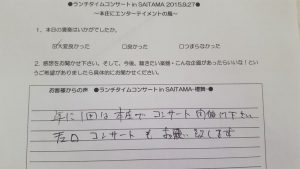 ●ランチタイムコンサート in SAITAMA 2015.9.27●
～本庄にエンターテイメントの風～
1．本日の演奏はいかがでしたか。
大変良かった □良かった □つまらなかった
2．感想をお聞かせ下さい。そして、今後、聴きたい楽器・こんな企画があったらいいな！という
ご希望がありましたら具体的にお聞かせください。
お客様からの声 ●ランチタイムコンサート in SAITAMA-埼玉-●
年に1回は本庄でコンサート開催下さい
コンサートもお願い致します